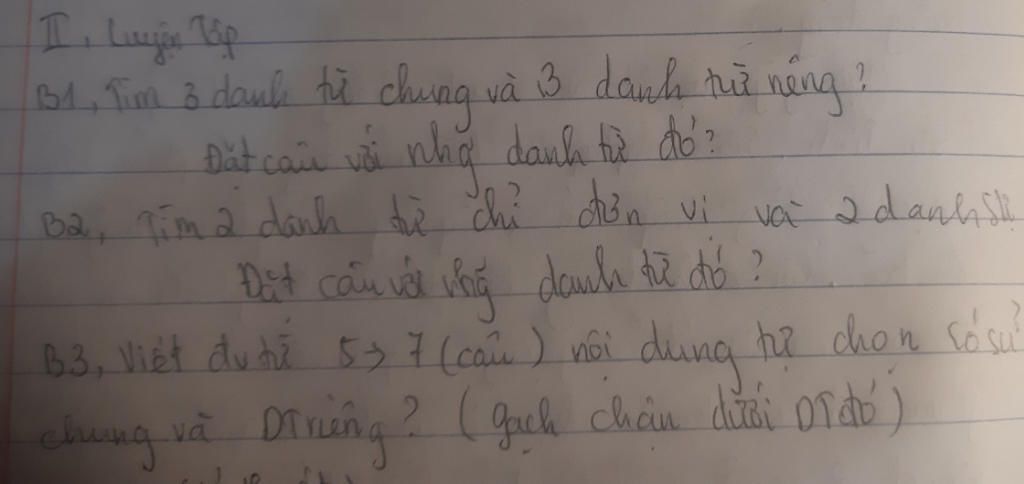 II, Luyện Tập
B1, Tìm 3 danh từ chung và 3 danh từ riêng?
Đặt câu với nhg danh từ đó?
B2, Tìm 2 danh từ chỉ đơn vị và 2 danh
Đặt câu với nhg danh từ đó?
B3, Viết đv từ 5→7 (câu) nội dung tự chọn có sử
chung và DT riêng? (gạch chân dưới DT đó)